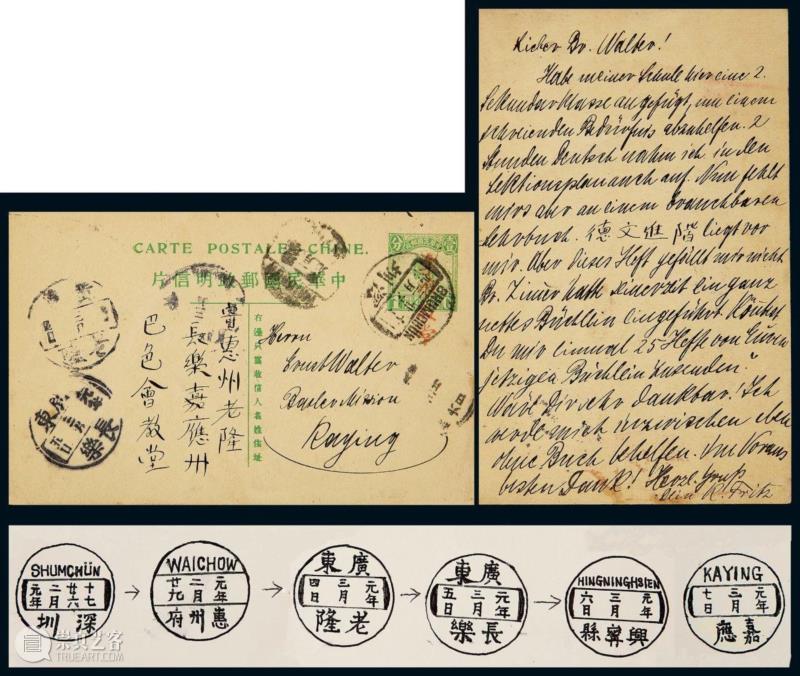 CARTE POSTALE CHINE.
片信明政郵國民華中
分壹
右邊只寫收信人名姓住址
惠州老隆
長樂嘉應州
巴色會教堂
Herrn
Ernst Walter
Basler Mission
Kaying
SHUMCHÜN
長樂
Lieber Br. Walter!
Habe meiner Schule hier eine 2.
Sekundarklasse angefügt, um einem
schreienden Bedürfnis abzuhelfen. 2
Stunden Deutsch nahm ich in den
Lektionsplan auch auf. Nun fehlt
mirs aber an einem brauchbaren
Lehrbuch. 德文進階 liegt vor
mir. Aber dieses Heft gefällt mir nicht.
Br. Zimmer hatte seinerzeit ein ganz
nettes Büchlein eingeführt. Könntest
Du mir einmal 25 Hefte von Euren
jetzigen Büchlein zusenden?
Wäre Dir sehr dankbar! Ich
werde mich inzwischen eben
ohne Buch behelfen. Im Voraus
besten Dank! Herzl. Gruß
Dein R. Fritz
SHUMCHÜN
元年 二月 廿六 十七
圳 深
WAICHOW
廿九 二月 元年
府州惠
東廣
四日 三月 元年
隆老
東廣
五日 三月 元年
樂長
HINGNINGHSIEN
六日 三月 元年
縣寧興
KAYING
七日 三月 元年
應嘉
崇真艺客
TRUEART.COM